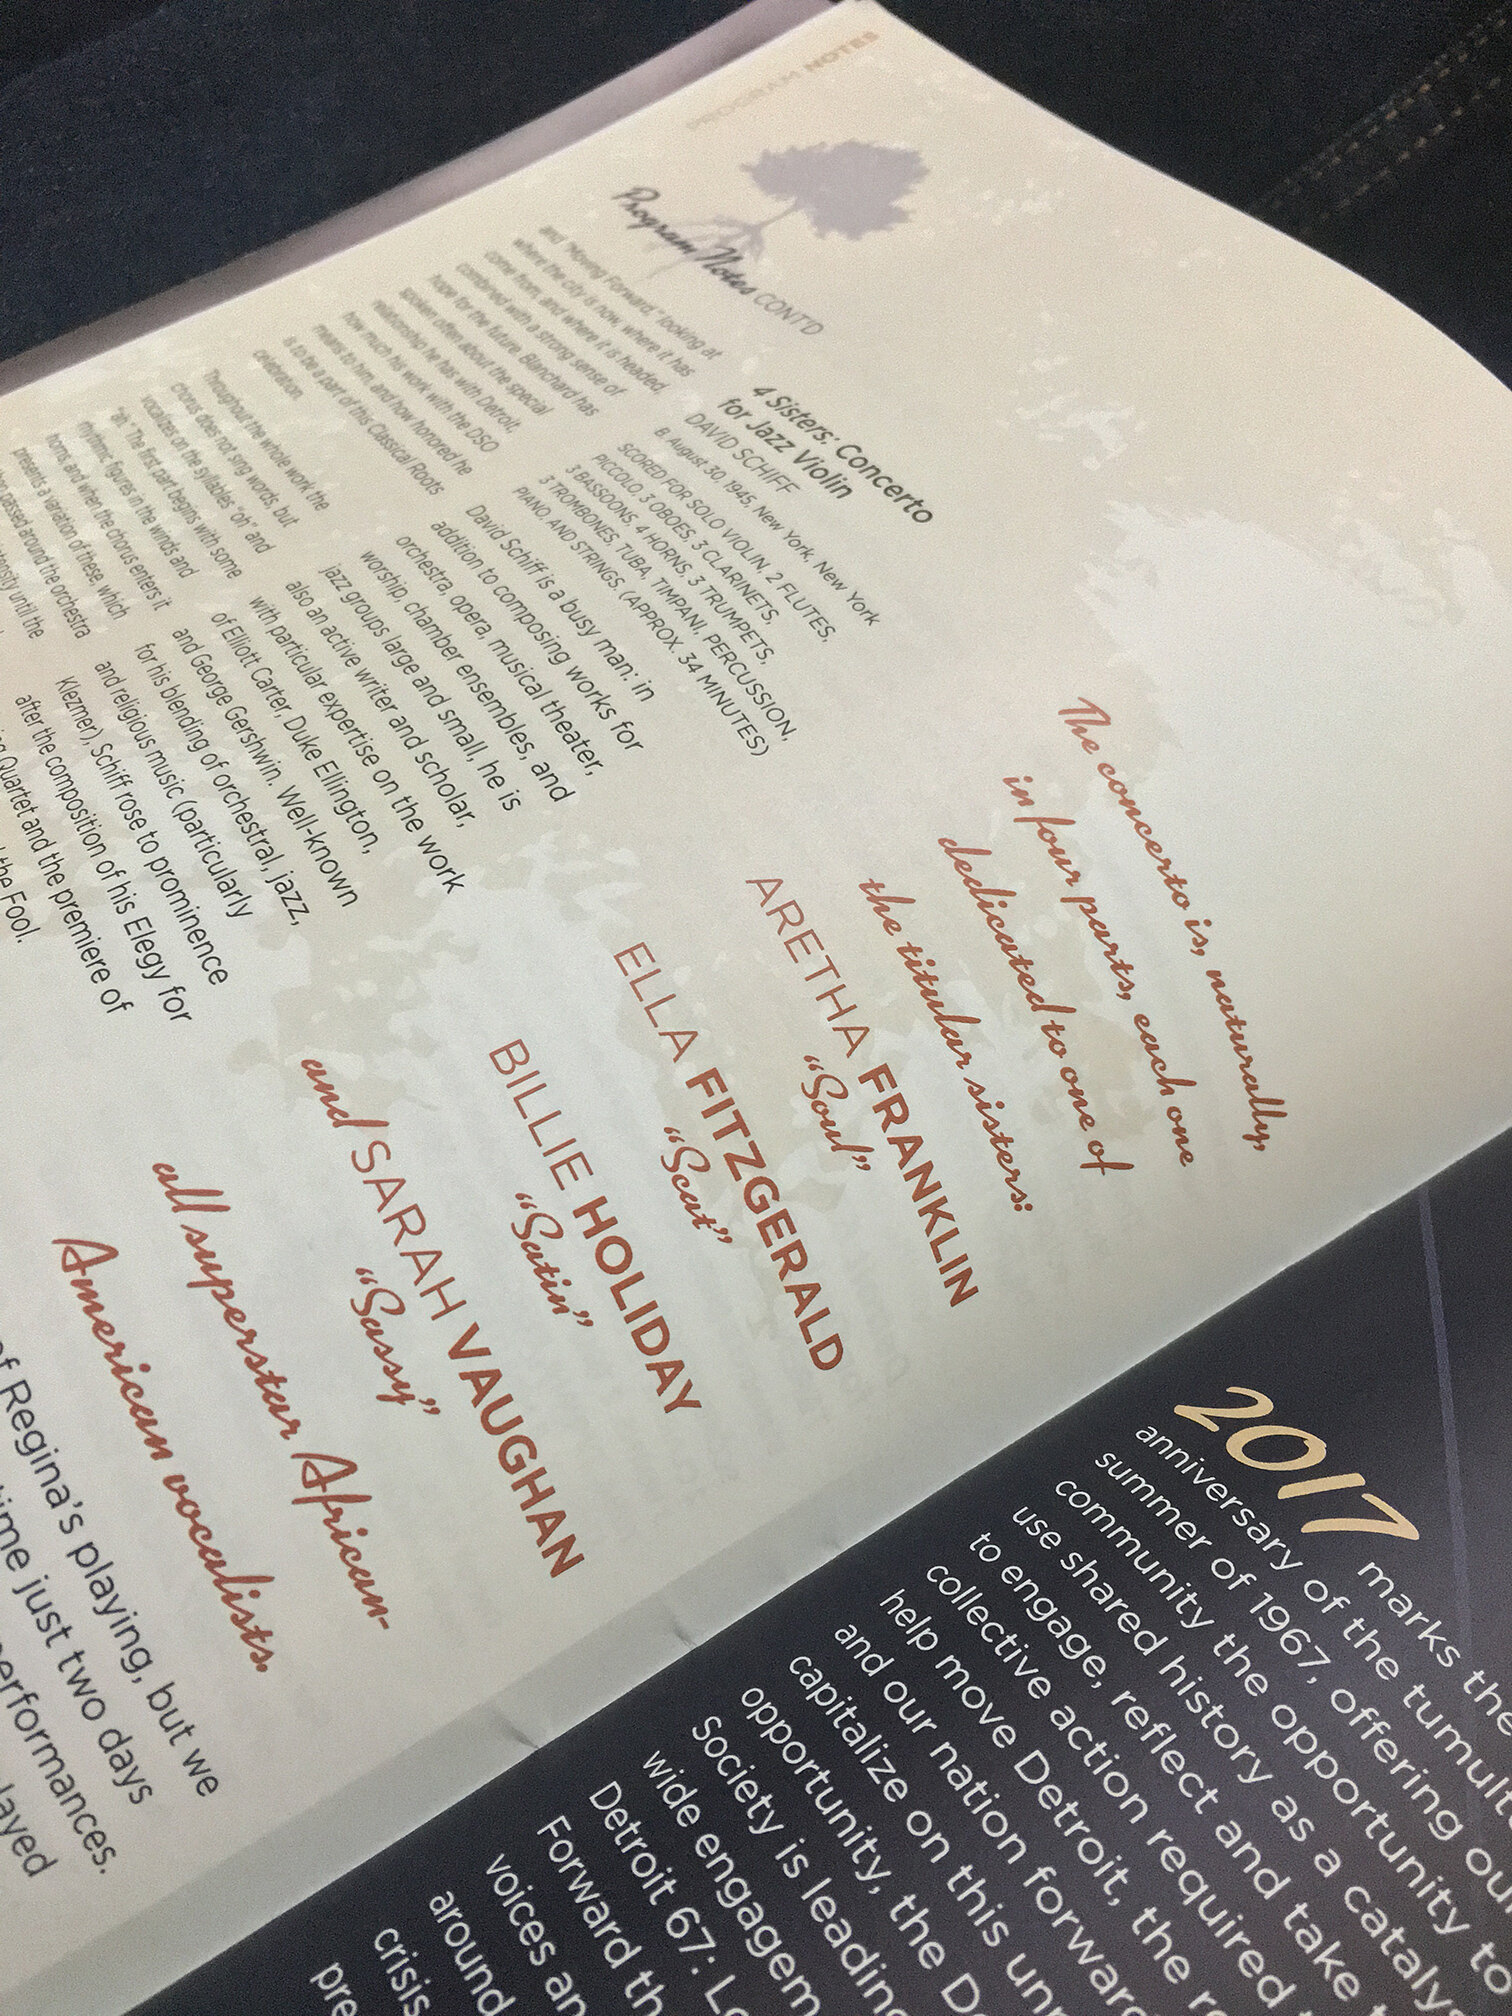 PROGRAM NOTES
Program Notes CONT'D
and "Moving Forward," looking at
where the city is now, where it has
come from, and where it is headed,
combined with a strong sense of
hope for the future. Blanchard has
spoken often about the special
relationship he has with Detroit,
how much his work with the DSO
means to him, and how honored he
is to be a part of this Classical Roots
celebration.
Throughout the whole work the
chorus does not sing words, but
vocalizes on the syllables "oh" and
"ah." The first part begins with some
rhythmic figures in the winds and
horns, and when the chorus enters it
presents a variation of these, which
passed around the orchestra
until the
4 Sisters: Concerto
for Jazz Violin
DAVID SCHIFF
B. August 30, 1945, New York, New York
SCORED FOR SOLO VIOLIN, 2 FLUTES,
PICCOLO, 3 OBOES, 3 CLARINETS,
3 BASSOONS, 4 HORNS, 3 TRUMPETS,
3 TROMBONES, TUBA, TIMPANI, PERCUSSION,
PIANO, AND STRINGS. (APPROX. 34 MINUTES)
David Schiff is a busy man: in
addition to composing works for
orchestra, opera, musical theater,
worship, chamber ensembles, and
jazz groups large and small, he is
also an active writer and scholar,
with particular expertise on the work
of Elliott Carter, Duke Ellington,
and George Gershwin. Well-known
for his blending of orchestral, jazz,
and religious music (particularly
Klezmer), Schiff rose to prominence
after the composition of his Elegy for
Quartet and the premiere of
the Fool.
The concerto is, naturally,
in four parts, each one
dedicated to one of
the titular sisters:
ARETHA FRANKLIN
"Soul"
ELLA FITZGERALD
"Scat"
BILLIE HOLIDAY
"Satin"
and SARAH VAUGHAN
"Sassy"
all superstar African-
American vocalists.
of Regina's playing, but we
time just two days
performances.
2017 marks the
anniversary of the
summer of 1967, offering
community the opportunity to
use shared history as a
to engage, reflect and take
collective action required
help move Detroit, the
and our nation
capitalize on this
opportunity, the
Society is
wide
Detroit 67:
Forward
voices
around
crisis